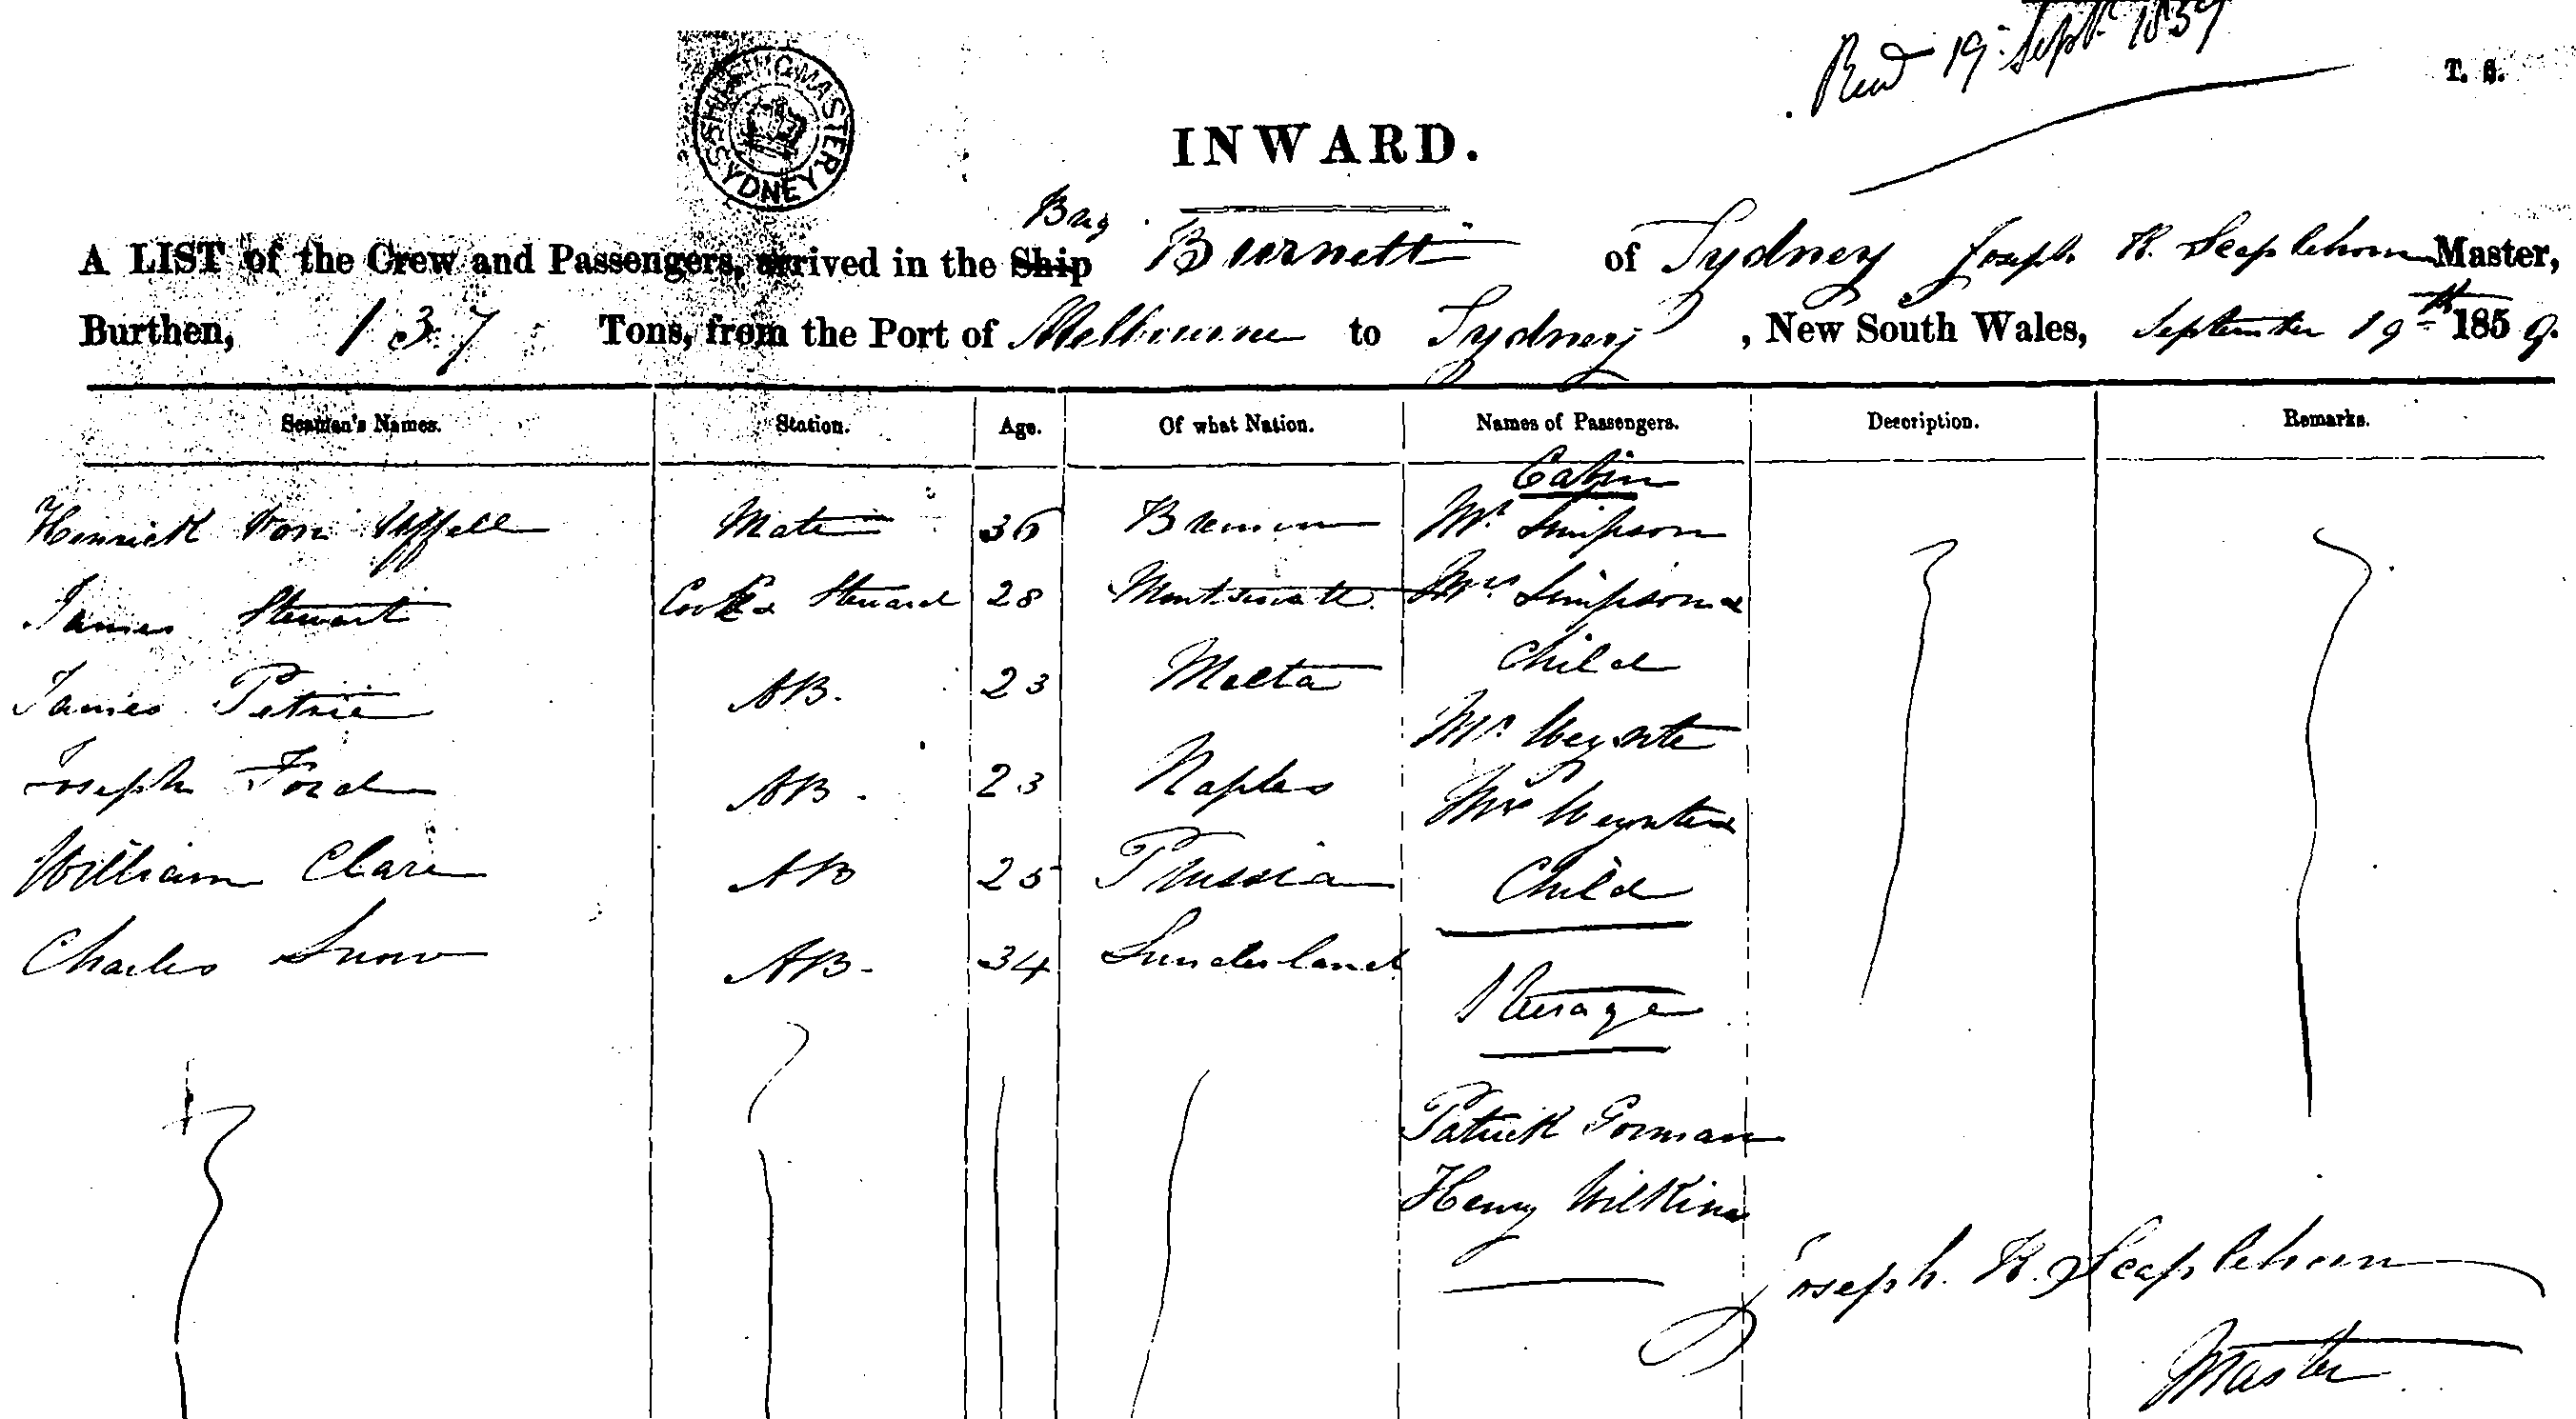 Recd 19 Sept 1859
T. S.
SHIPPING MASTER SYDNEY
INWARD.
Brig
A LIST of the Crew and Passengers, arrived in the Ship Burnett of Sydney Joseph K. Scaplehorn Master,
Burthen, 137 Tons, from the Port of Melbourne to Sydney, New South Wales, September 19th 1859.
Seaman's Names. Station. Age. Of what Nation. Names of Passengers. Description. Remarks.
Cabin
Hinrick Von Uffell Mate 36 Bremen Mr Simpson
James Stewart Cook & Steward 28 Montserratt Mrs Simpson &
Child
James Petrie AB. 23 Malta
Mr
Joseph Ford AB. 23 Naples
Mrs
William Clare AB 25 Prussia Child
Charles Snow AB. 34 Sunderland
Steerage
Patrick Gorman
Henry Wilkins
Joseph. K. Scaplehorn
Master